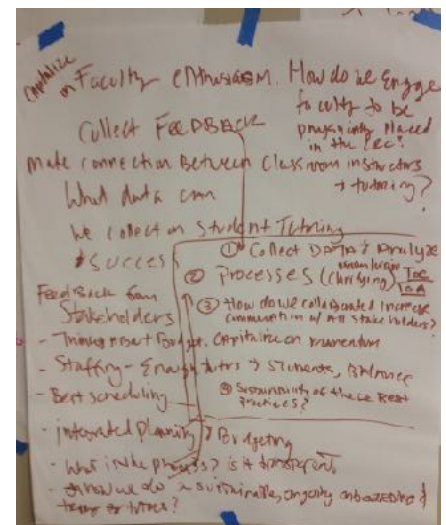 Capitalize
on Faculty enthusiasm. How do we engage
faculty to be
placed
in the LRC?
Collect FEEDBACK
Make connection Between Classroom instructors
+ tutoring?
What data can
we collect on Student Tutoring
Success
① Collect DATA & Analyze
② Processes (clarifying)
③ How do we collaborate increase
communication w/ All Stakeholders?
Feedback from
Stakeholders
- Thinking about Budget. Capitalize on momentum
- Staffing - Enough tutors → Students, Balance
- Best scheduling
④ Sustainability of these Best
Practices?
- integrated planning & Budgeting
- What is the process? is it transparent
- How we do a sustainable, ongoing onboarding &
tutors?